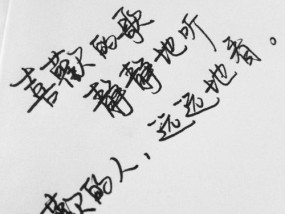 喜歡的歌
静静地听
歡的人，远远地看。